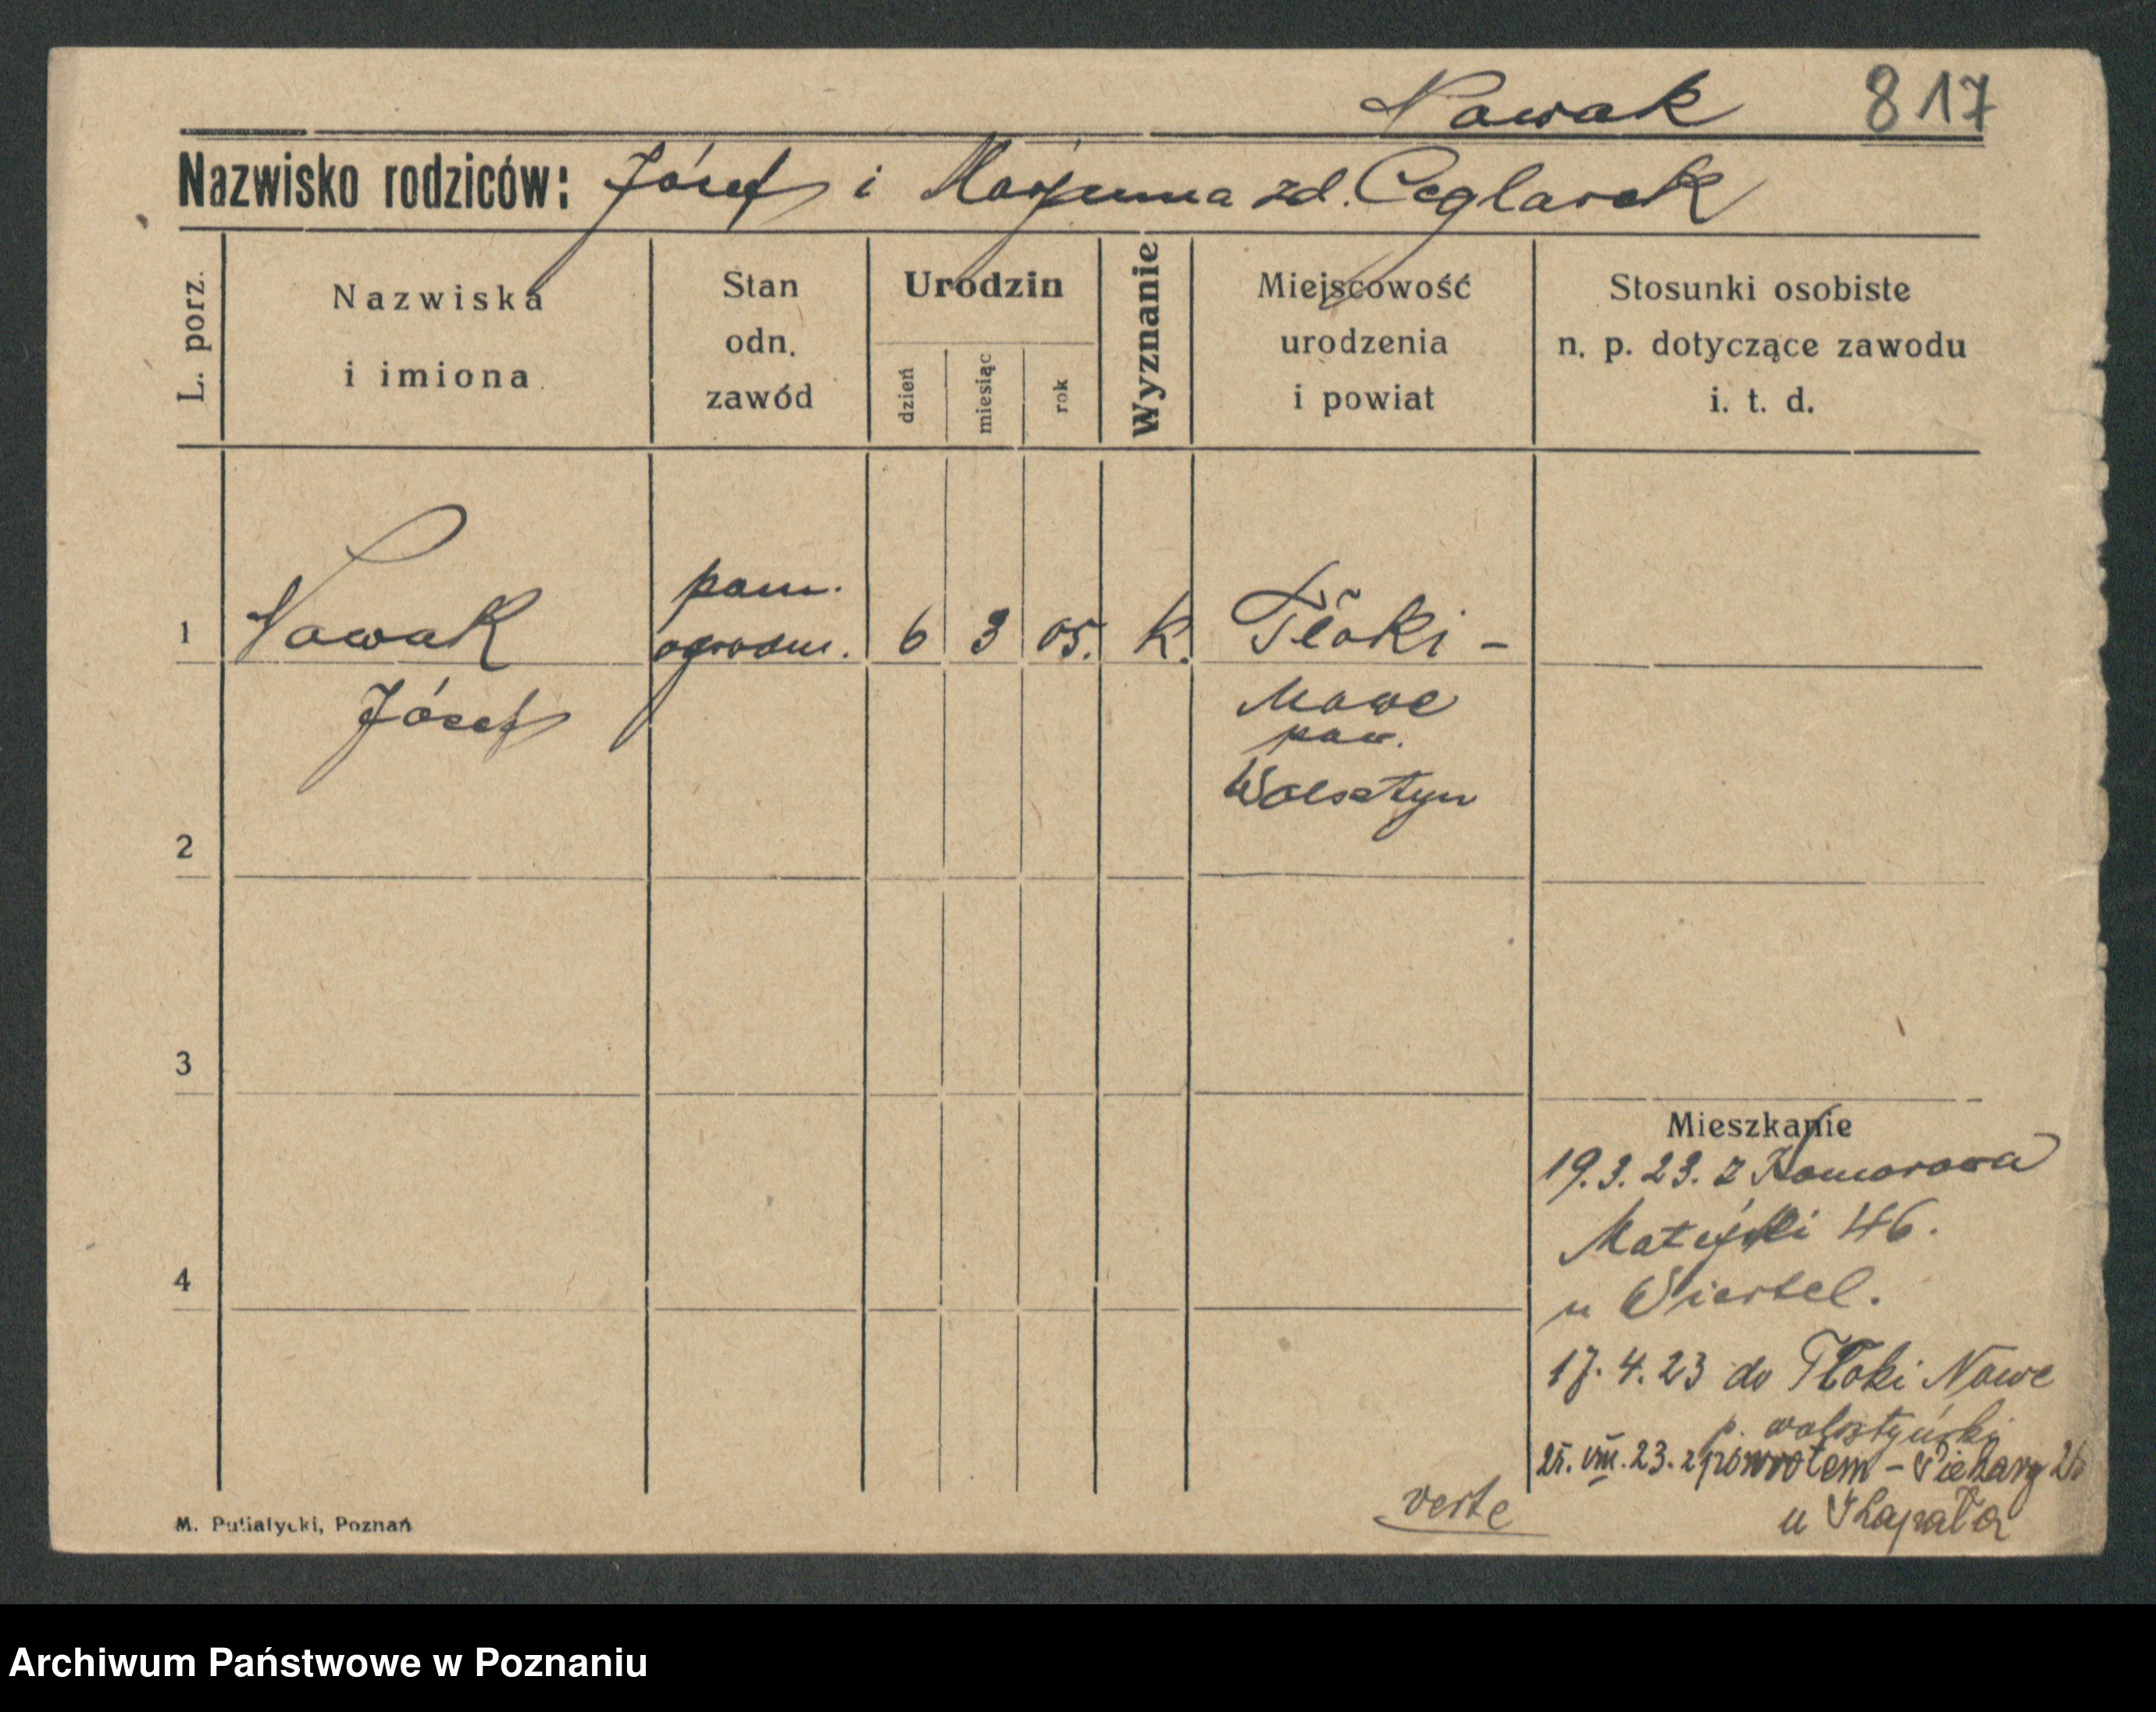 Nowak 817
Nazwisko rodziców: Józef i Marjanna zd. Ceglarek
L. porz.
Nazwiska
i imiona
Stan
odn.
zawód
Urodzin
dzień
miesiąc
rok
Wyznanie
Miejscowość
urodzenia
i powiat
Stosunki osobiste
n. p. dotyczące zawodu
i. t. d.
1 Nowak pom. ogrodn. 6 3 05. k. Tłoki -
Józef Nowe
pow.
Wolsztyn
2
3
4
Mieszkanie
19.3.23. z Komorowa
Matejki 46.
u Wiertel.
17.4.23 do Tłoki Nowe
p. wolsztyński
25.VIII.23. z powrotem - Piekary
u
verte
M. Putiatycki, Poznań
Archiwum Państwowe w Poznaniu